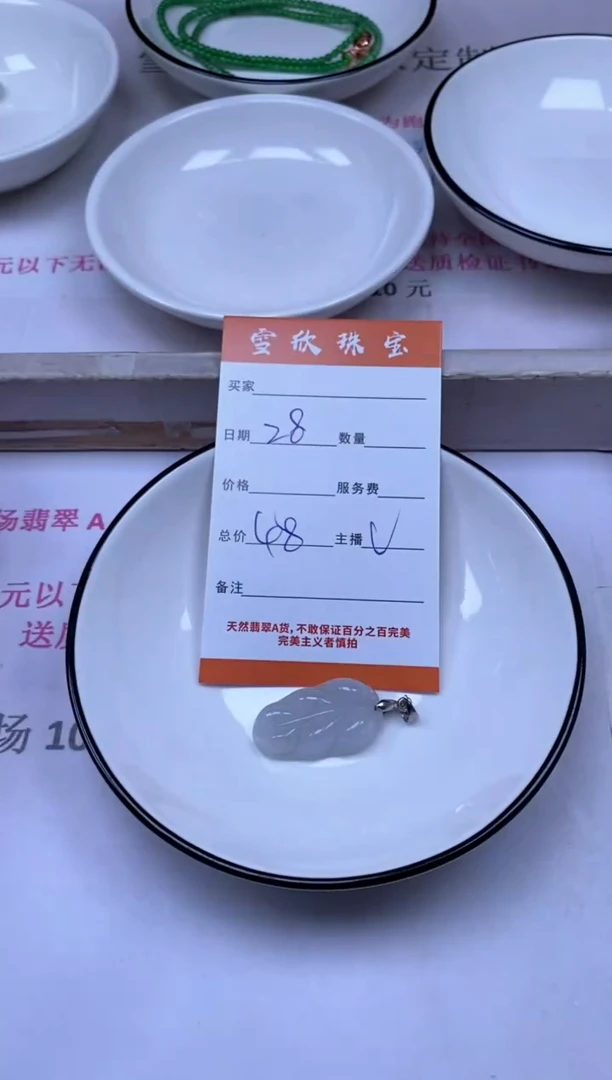 定制
元以下无
送质检证书
10 元
雪欣珠宝
买家
日期 28 数量
价格 服务费
总价 68 主播 V
备注
天然翡翠A货，不敢保证百分之百完美
完美主义者慎拍
场翡翠 A
元以
送质
场 10